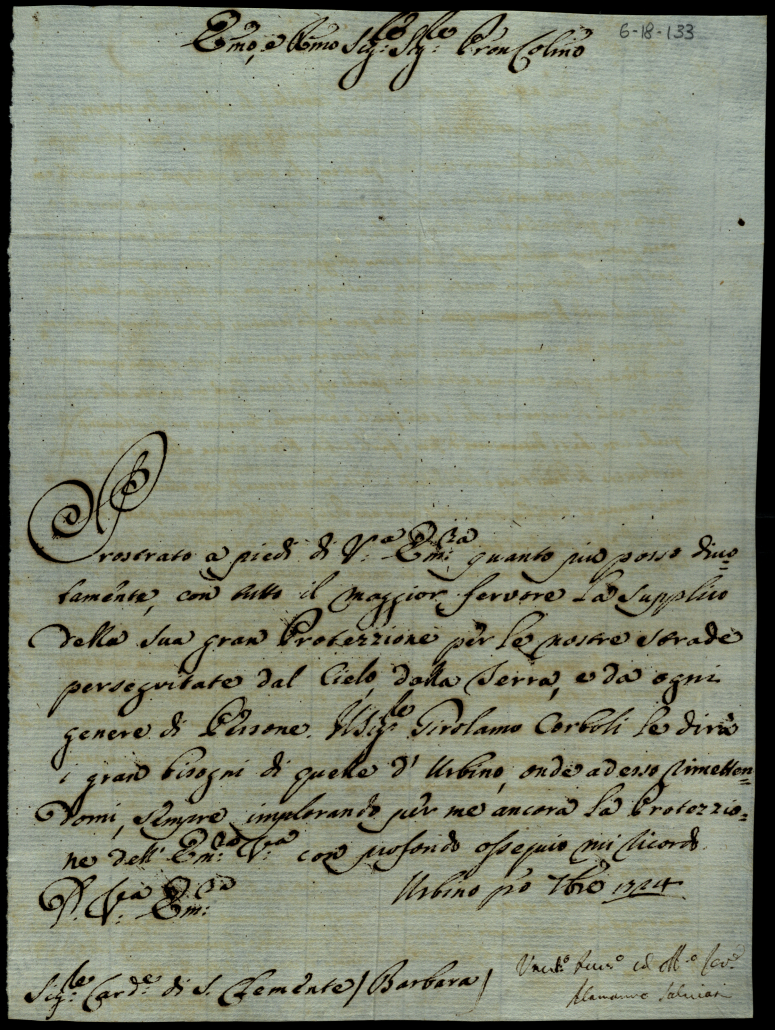 6-18-133
Emo, e Rmo Sig.re Sig.re Pron Colmo
Prostrato a piedi di V.a Em.za quanto piu posso divo=
tamente, con tutto il maggior fervore La supplico
della sua gran Protezzione per le nostre strade
perseguitate dal Cielo, dalla Terra, e da ogni
genere di Persone. Il Sig.re Girolamo Corboli le dirà
i gran bisogni di quelle d' Urbino, onde adesso rimetten=
domi, sempre implorando per me ancora La Protezzio=
ne dell' Em.za V.a con profondo ossequio mi ricordo.
D. V.a Em.za
Urbino pro 7bre 1724
Sig.re Card.e di S. Clemente / Barbara /
Alamanno Salviati